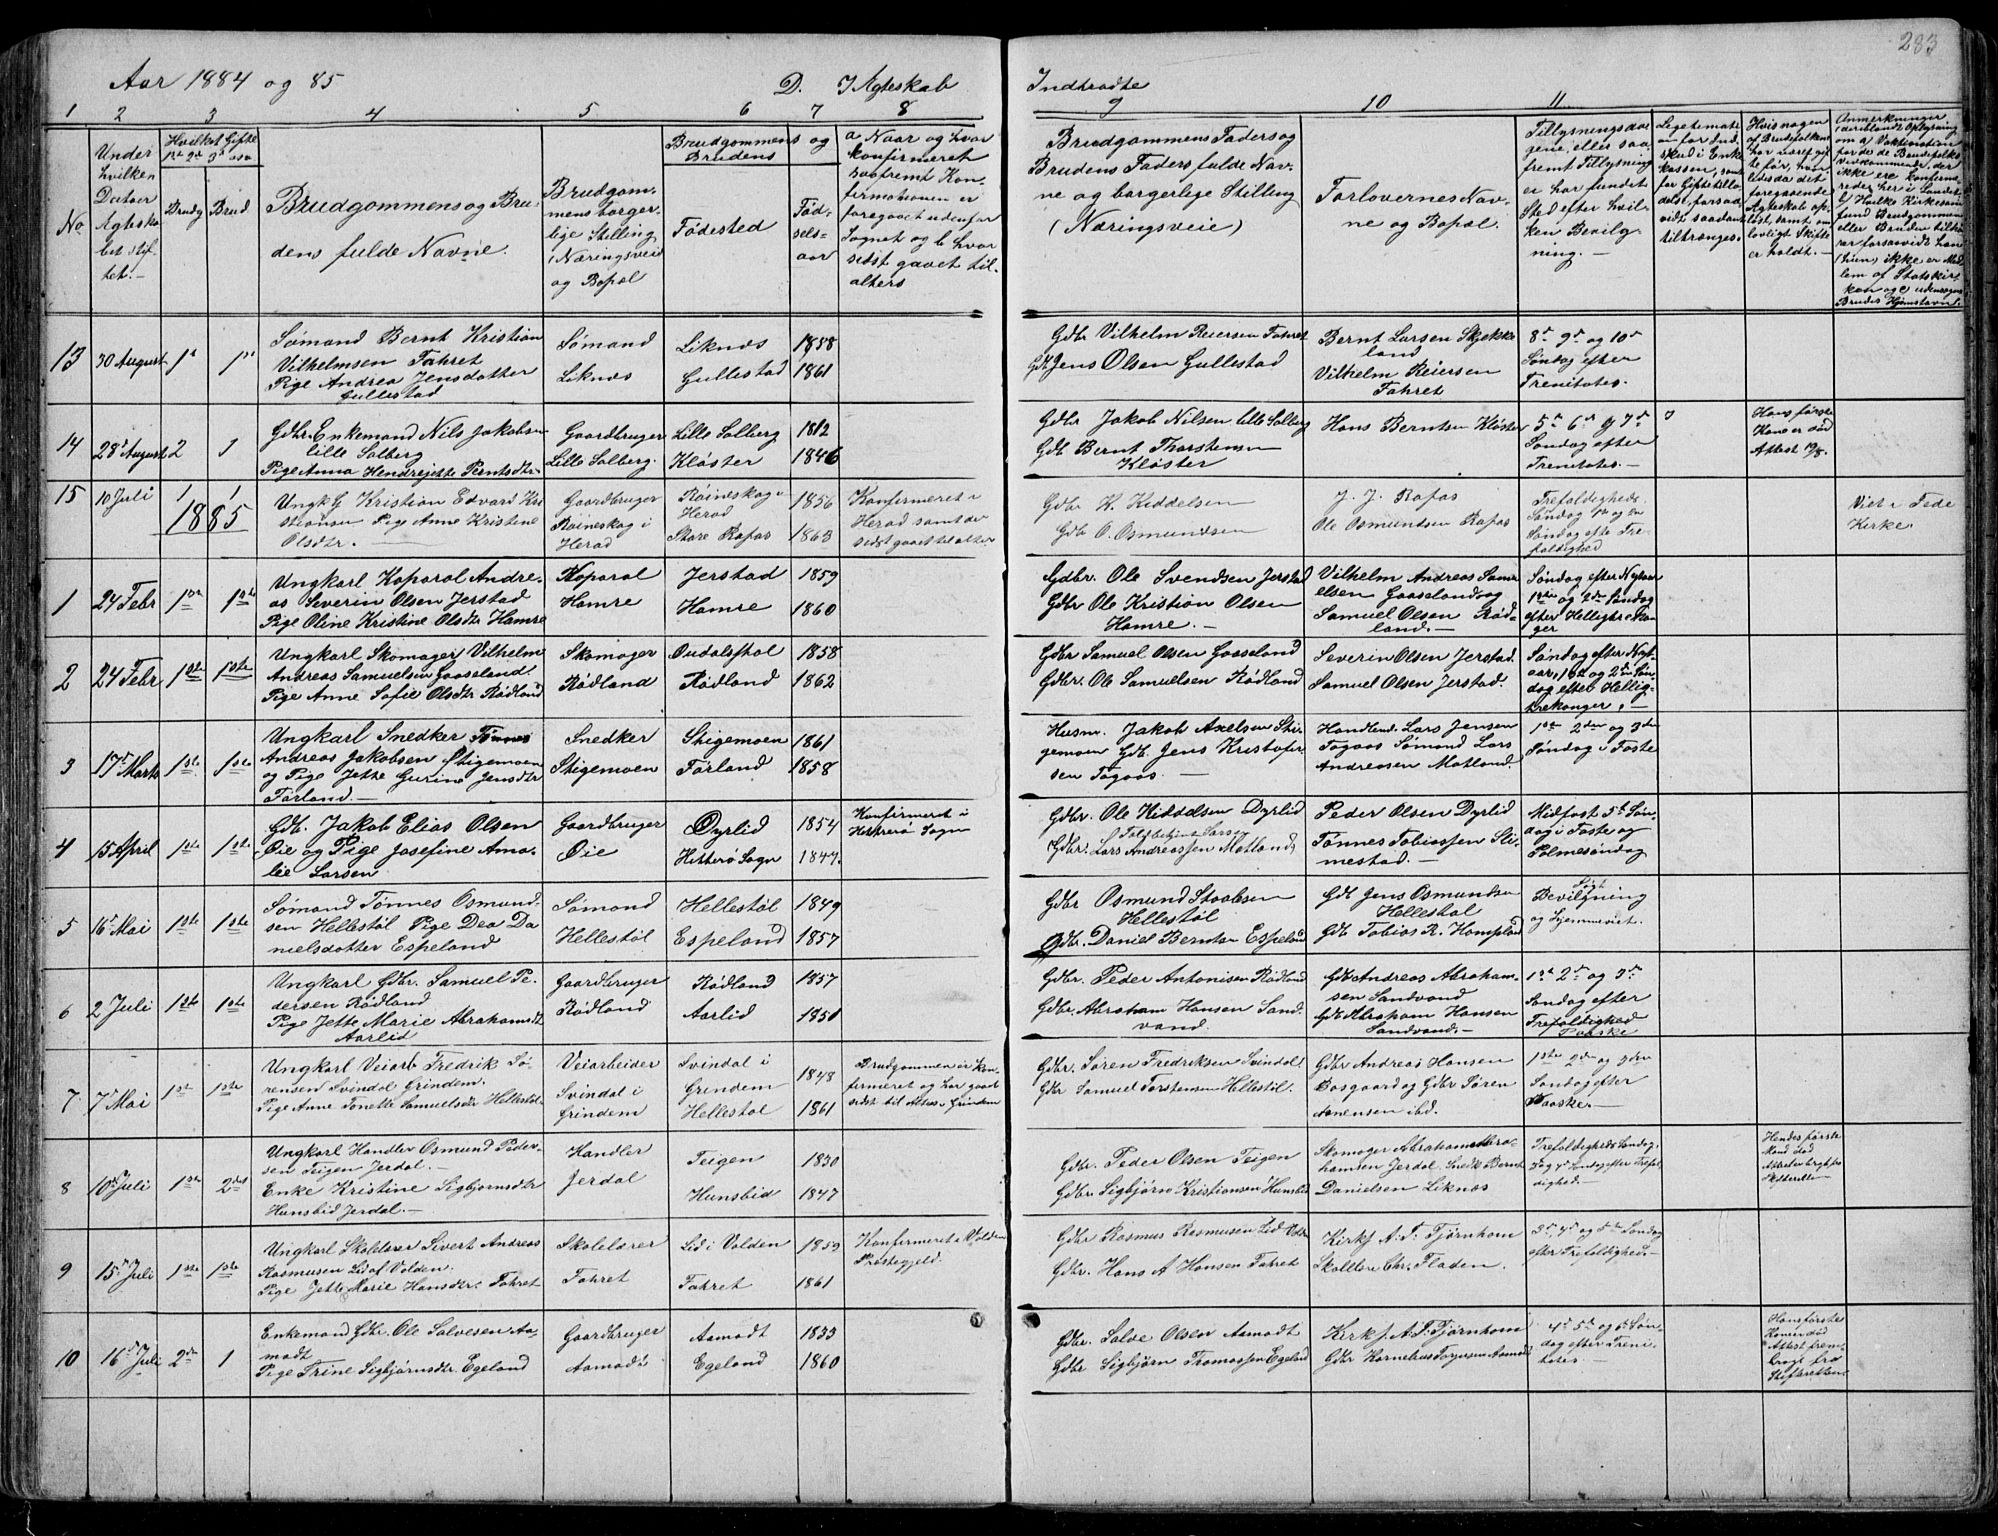 283
Aar 1884 og 85
D. I Ægteskab
Indtraadte
1 2 3 4 5 6 7 8
9 10 11
No
Under hvilken Datoer Ægteskabet stiftet.
Hvilket Gifte
1st 2d 3d osv
Brudg Brud
Brudgommens og Brudens fulde Navne.
Brudgommens borgerlige Stilling (Næringsvei) og Bopæl
Brudgommens og Brudens
Fødested
Fødselsaar
a Naar og hvor konfirmeret
saafremt Konfirmationen er
foregaaet udenfor Sognet og b hvor
sidst gaaet til alters
Brudgommens Faders og
Brudens Faders fulde Navne og borgerlige Stilling
(Næringsveie)
Forlovernes Navne og Bopæl.
Tillysningsdagene, eller saafremt Tillysning
ei har fundet Sted efter hvilken Bevilgning.
13 30 August 1st 1st
Sømand Bernt Kristian
Vilhelmsen Fahret
Pige Andrea Jensdatter
Gullestad
Sømand
Liknæs
Liknæs
Gullestad
1858
1861
Gdbr Vilhelm Reiersen Fahret
Gdb Jens Olsen Gullestad
Bernt Larsen Skjekkeland
Vilhelm Reiersen
Fahret
8d 9d og 10d
Søndag efter
Trenitates.
14 28d August 2 1
Gdbr Enkemand Nils Jakobsen
lille Solberg
Pige Anna Hendrejette Berntsdtr
Gaardbruger
Lille Solberg.
Lille Solberg
Kløster
1812
1846
Gdbr Jakob Nilsen lille Solberg
Gdb Bernt Thorstensen
Kløster
Hans Berntsen Kløster
5d 6d og 7d
Søndag efter
Trenitates.
Hans første
Kone er død
Attest
15 10 Juli 1 1
1885
Ungk G Kristian Edvard Kristiansen Pige Anne Kristine
Olsdtr.
Gaardbruger
Røineskog i
Herad
Røineskog i
Herad
Støre Rafos
1856
1863
Konfirmeret i
Herad samt der
sidst gaaet til alter
Gdbr K. Kiddelsen
Gdb O. Osmundsen
J. J. Rafos
Ole Osmundsen Rafos
Trefoldigheds
Søndag 1st og 2n
Søndag efte Trefoldighed
Viet i Fede
Kirke.
1 24 Febr 1ste 1ste
Ungkarl Koparal Andreas Severin Olsen Jerstad
Pige Oline Kristine Olsdtr Hamre
Koparal
Hamre
Jerstad
Hamre
1859
1860
Gdbr. Ole Svendsen Jerstad
Gdbr Ole Kristian Olsen
Hamre.
Vilhelm Andreas Samuelsen Gaaseland og
Samuel Olsen Rødland.
Søndag efter Nytaar
1ste og 2den Søndag
efter Helligtrekonger
2 24 Febr 1ste 1ste
Ungkarl Skomager Vilhelm
Andreas Samuelsen Gaaseland
Pige Anne Sofie Olsdtr Rødland
Skomager
Rødland
Oudalsstøl
Rødland
1858
1862
Gdbr Samuel Olsen Gaaseland
Gdbr. Ole Samuelsen Rødland
Severin Olsen Jerstad.
Samuel Olsen Jerstad.
Søndag efter Nytaar, 1st og 2den Søndag efter Helligtrekonger.
3 17d Marts 1ste 1ste
Ungkarl Snedker Tønnes
Andreas Jakobsen Stigemoen
og Pige Jette Gurine Jensdtr
Førland.
Snedker
Stigemoen
Stigemoen
Førland
1861
1858
Husm. Jakob Axelsen Stigemoen Gdb. Jens Kristofersen Fogaas.
Handlend. Lars Jensen
Fogaas Sømand Lars
Andreasen Motland.
1ste 2den og 3den
Søndag i Faste
4 15 April 1ste 1ste
Gdb. Jakob Elias Olsen
Øie og Pige Josefine Amalie Larsen
Gaardbruger
Øie
Dyrlid
Hitterø Sogn
1854
1847.
Konfirmeret i
Hitterø Sogn
Gdbr. Ole Kiddelsen Dyrlid
Gdbr. Lars Andreassen Motland
Peder Olsen Dyrlid
Tønnes Tobiassen Slimestad.
Midfast 5te Søndag i Faste og
Palmesøndag
5 16d Mai 1ste 1ste
Sømand Tønnes Osmundsen Hellestøl Pige Dea Danielsdotter Espeland
Sømand
Hellestøl
Hellestøl
Espeland
1849
1857
Gdbr Osmund Staalesen
Hellestøl
Gdbr. Daniel Berntsen Espeland
Gdb Jens Osmundsen
Hellestøl
Gdb Tobias R. Hompland
Søgt
Bevilgning
og hjemmeviet.
6 2 Juli 1ste 1ste
Ungkarl Gdbr. Samuel Pedersen Rødland
Pige Jette Marie Abrahamsdt
Aarlid
Gaardbruger
Rødland
Rødland
Aarlid
1857
1851
Gdbr. Peder Antonisen Rødland
Gdbr. Abraham Hansen Sandvand.
Gdb Andreas Abrahamsen Sandvand
Gdb Abraham Hansen
Sandvand.
1st 2d og 3d
Søndag efter
Trefoldighed
Paaske
7 7d Mai 1st 1ste
Ungkarl Veiarb Fredrik Sørensen Svindal Grindem.
Pige Anne Tonette Samuelsdtr Hellestøl
Veiarbeider
Svindal i
Grindem
Svindal i
Grindem
Hellestøl
1848
1861
Brudgommen er konfirmeret og har gaaet
sidst til Alters i Grindem
Gdbr. Søren Fredriksen Svindal
Gdbr Samuel Torstensen Hellestøl.
Gdbr Andreas Hansen
Bosgaard og Gdbr Søren
Sørensen ibd.
1ste 2den og 3den
Søndag efter
Paaske.
8 10d Juli 1ste 2det
Ungkarl Handler Osmund Pedersen Teigen Jerdal.
Enke Kristine Sigbjørnsdtr
Hunsbid Jerdal.
Handler
Jerdal
Teigen
Hunsbid
1830
1847
Gdbr. Peder Olsen Teigen
Gdbr Sigbjørn Kristiansen Hunsbid
Skomager Abraham Abrahamsen Jerdal. Snedk Bernt
Danielsen Liknæs
Trefoldigheds Søndag,
3d og 4d Søndag efter Trefoldighed.
Hendes første
Mand død
9 15d Juli 1ste 1ste
Ungkarl Skolelærer Sivert Andreas
Rasmusen Lid af Volden.
Pige Jette Marie Hansdtr. Fahret
Skolelærer
Fahret
Lid i Volden
Fahret
1859
1861
Konfirmeret i Volden
Præstegjeld.
Gdbr Rasmus Rasmusen Lid Volden
Gdbr. Hans A Hansen Fahret
Kirks A. F. Tjørnhom
Skolelær Chr. Fladen.
3d, 4d og 5te Søndag
efter Trefoldighed.
10 16d Juli 2den 1
Enkemand Gdbr. Ole Salvesen Aamodt
Pige Trine Sigbjørnsdtr. Egeland
Gaardbruger
Aamodt
Aamodt
Egeland
1833
1860
Gdbr. Salve Olsen Aamodt
Gdbr. Sigbjørn Tomassen Egeland
Kirks. A. F. Tjørnhom
Gdbr Kornelius Torgersen Aamodt
4d 5d og 6d Søndag efter Trenitates.
Hans første
Kone er død
Attest frembragt fra
Skifteretten